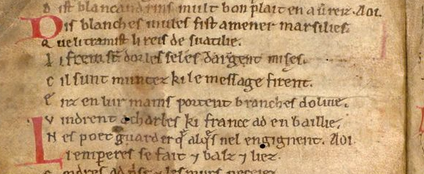 ist blancandrins mult bon plait en aureiz. Aoi.
Dis blanches mules fist amener marsilies.
Que li tramist li reis de suatilie.
Li frein sūt dor les seles dargent mises.
Cil sunt muntez ki le message firent.
Enz en lur mains portent branches dolive.
Vindrent a charles ki france ad en baillie.
Nes poet guarder q̄ alq̄s nel engignent. AOI
Li emperes se fait ⁊ balz ⁊ liez.
cordres ad p̄se ⁊ les murs peceiez